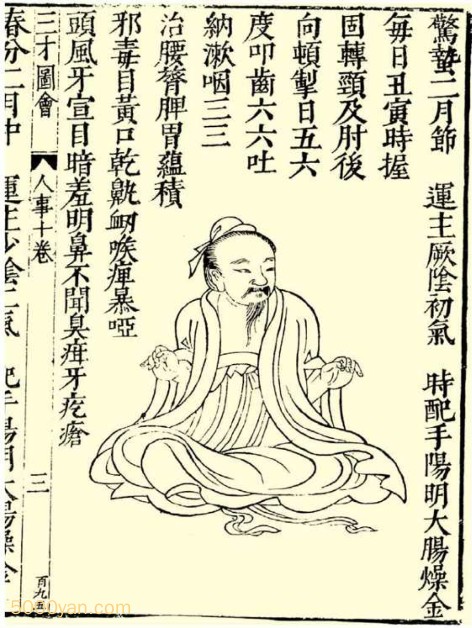 驚蟄二月節 運主厥陰初氣 時配手陽明大腸燥金
每日丑寅時握
固轉頸及肘後
向頓掣日五六
度叩齒六六吐
納漱咽三三
治腰膂脾胃蘊積
邪毒目黃口乾鼽衂喉痺暴啞
頭風牙宣目暗羞明鼻不聞臭牙疙瘡
三才圖會 人事十卷 三 百九五
春分二月中 運主少陰二氣 配手陽明大腸燥金
5050yan.com